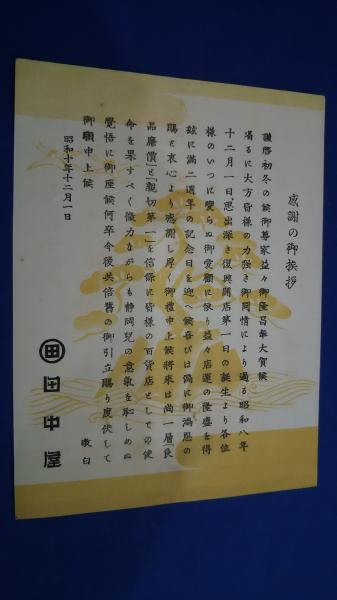 感謝の御挨拶
謹啓初冬の候御尊家益々御隆昌奉大賀候
陳るに大方皆様の力強き御同情により過る昭和八年
十二月一日思出深き復興開店第一日の誕生より各位
様のいつに變らぬ御愛顧に依り益々店運の隆盛を得
玆に滿二週年の記念日を迎へ候喜びは偏に御鴻恩の
賜と衷心より感謝し厚く御禮申上候將來は尚一層「良
品廉價」と「親切第一」を信條に皆様の百貨店としての使
命を果すべく微力ながらも静岡兒の意氣を恥しめぬ
覺悟に御座候何卒今後共倍舊の御引立賜り度伏して
御願申上候
敬白
昭和十年十二月一日
田 田中屋